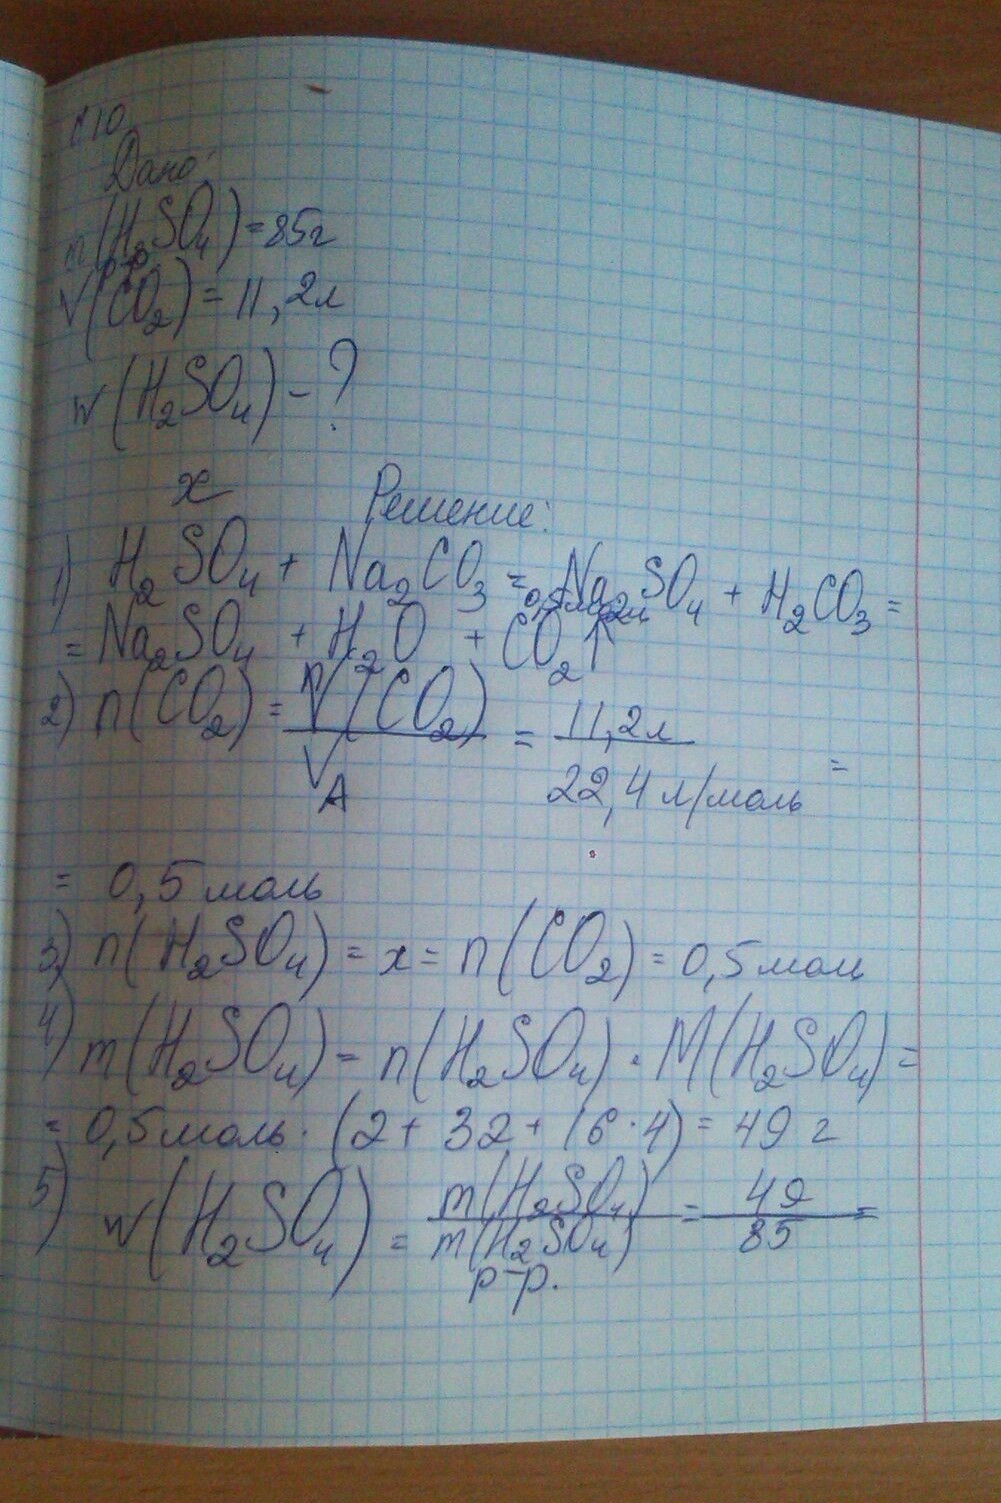 С10
Дано:
m(H₂SO₄)=85г
р-р
V(CO₂)=11,2л
w(H₂SO₄)-?
x Решение:
1) H₂SO₄ + Na₂CO₃ = Na₂SO₄ + H₂CO₃ =
= Na₂SO₄ + H₂O + CO₂↑
2) n(CO₂) = V(CO₂) / VА = 11,2л / 22,4 л/моль =
= 0,5 моль
3) n(H₂SO₄) = x = n(CO₂) = 0,5 моль
4) m(H₂SO₄) = n(H₂SO₄) · M(H₂SO₄) =
= 0,5 моль · (2 + 32 + 16 · 4) = 49 г
5) w(H₂SO₄) = m(H₂SO₄) / m(H₂SO₄) = 49 / 85 =
р-р.